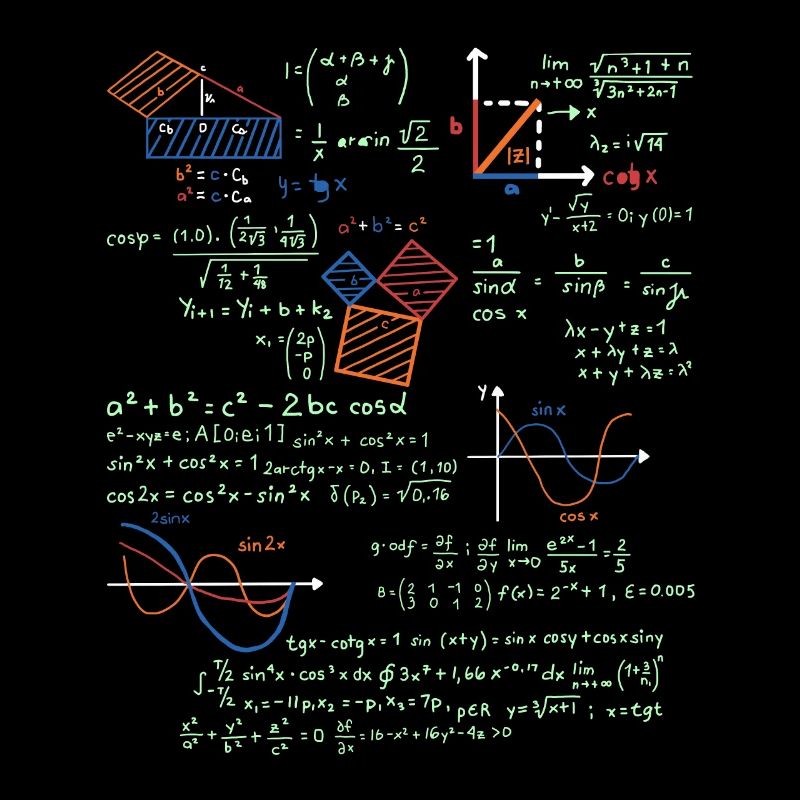 c
b
a
vₙ
Cb D Ca
b² = c · Cb
a² = c · Ca
y = tg x
1 = (α + β + γ
α
β)
= 1/x arcsin √2/2
b
|z|
a
x
cotg x
lim n→+∞ √(n³+1+n) / ∛(3n²+2n-1)
λ₂ = i√14
y' - √y/(x+2) = 0; y(0)=1
cosφ = (1.0) · (1/(2√3), 1/(4√3)) / √(1/12 + 1/48)
a² + b² = c²
b
a
c
Yi+1 = Yi + b + k₂
x₁ = (2p
-p
0)
=1
a/sinα = b/sinβ = c/sinγ
cos x
λx - y + z = 1
x + λy + z = λ
x + y + λz = λ²
a² + b² = c² - 2bc cosα
e² - xyz = e; A[0;e;1] sin²x + cos²x = 1
sin²x + cos²x = 1 2arctgx - x = 0, I = (1,10)
cos2x = cos²x - sin²x δ(P₂) = √0,.16
y
sin x
cos x
2sinx
sin2x
g·odf = ∂f/∂x ; ∂f/∂y lim x→0 (e²ˣ - 1)/5x = 2/5
B = (2 1 -1 0
3 0 1 2) f(x) = 2⁻ˣ + 1, Ɛ = 0.005
tgx - cotgx = 1 sin (x+y) = sinx cosy + cosxsiny
∫ T/2 -T/2 sin⁴x · cos³x dx ∮ 3x⁷ + 1,66 x⁻⁰·¹⁷ dx lim n→+∞ (1 + 3/n)ⁿ
x₁ = -11p, x₂ = -p, x₃ = 7p, pЄR y = ∛(x+1) ; x = tgt
x²/a² + y²/b² + z²/c² = 0 ∂f/∂x = 16 - x² + 16y² - 4z > 0